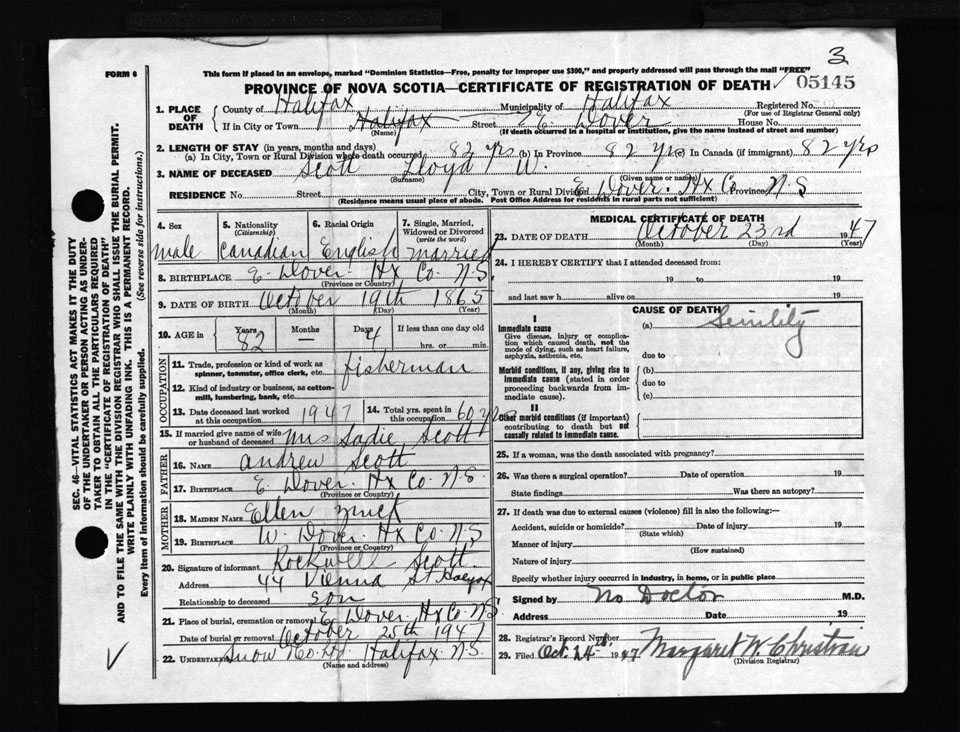 3
FORM 6
This form if placed in an envelope, marked "Dominion Statistics—Free, penalty for improper use $300," and properly addressed will pass through the mail "FREE"
PROVINCE OF NOVA SCOTIA—CERTIFICATE OF REGISTRATION OF DEATH 05145
1. PLACE OF DEATH County of Halifax Municipality of Halifax Registered No.
(For use of Registrar General only)
If in City or Town Halifax Street E. Dover House No.
(Name) (If death occurred in a hospital or institution, give the name instead of street and number)
2. LENGTH OF STAY (in years, months and days)
(a) In City, Town or Rural Division where death occurred 82 yrs (b) In Province 82 yrs (c) In Canada (if immigrant) 82 yrs
3. NAME OF DECEASED Scott Lloyd W.
(Surname) (Given name or names)
RESIDENCE No. Street City, Town or Rural Division E. Dover. Hx Co. Province N.S
(Residence means usual place of abode. Post Office Address for residents in rural parts not sufficient)
4. Sex male
5. Nationality (Citizenship) Canadian
6. Racial Origin English
7. Single, Married, Widowed or Divorced (write the word) married
8. BIRTHPLACE E. Dover. Hx Co. N.S.
(Province or Country)
9. DATE OF BIRTH October 19th 1865
(Month) (Day) (Year)
10. AGE in Years 82 Months — Days 4 If less than one day old hrs. or min.
OCCUPATION
11. Trade, profession or kind of work as spinner, teamster, office clerk, etc. fisherman
12. Kind of industry or business, as cotton-mill, lumbering, bank, etc.
13. Date deceased last worked at this occupation 1947 14. Total yrs. spent in this occupation 60 yrs
15. If married give name of wife or husband of deceased Mrs Sadie Scott
FATHER
16. NAME Andrew Scott
17. BIRTHPLACE E. Dover. Hx Co. N.S.
(Province or Country)
MOTHER
18. MAIDEN NAME Ellen Zinck
19. BIRTHPLACE W. Dover. Hx Co. N.S
(Province or Country)
20. Signature of informant Rockwell Scott
Address 44 Vienna St Halifax
Relationship to deceased son
21. Place of burial, cremation or removal E. Dover, Hx Co. N.S.
Date of burial or removal October 25th 1947
22. UNDERTAKER Snow Halifax N.S.
(Name and address)
MEDICAL CERTIFICATE OF DEATH
23. DATE OF DEATH October 23rd 1947
(Month) (Day) (Year)
24. I HEREBY CERTIFY that I attended deceased from:
19 to 19
and last saw h alive on 19
CAUSE OF DEATH
I
Immediate cause (a) Senility
Give disease, injury or complication which caused death, not the mode of dying, such as heart failure, asphyxia, asthenia, etc.
due to
Morbid conditions, if any, giving rise to immediate cause (stated in order proceeding backwards from immediate cause).
(b)
due to
(c)
II
Other morbid conditions (if important) contributing to death but not causally related to immediate cause.
25. If a woman, was the death associated with pregnancy?
26. Was there a surgical operation? Date of operation 19
State findings Was there an autopsy?
27. If death was due to external causes (violence) fill in also the following:—
Accident, suicide or homicide? Date of injury 19
(State which)
Manner of injury
(How sustained)
Nature of injury
Specify whether injury occurred in industry, in home, or in public place
Signed by No Doctor M.D.
Address Date 19
28. Registrar's Record Number
29. Filed Oct. 24th 1947 Margaret W. Christian
(Division Registrar)
SEC. 46—VITAL STATISTICS ACT MAKES IT THE DUTY
OF THE UNDERTAKER OR PERSON ACTING AS UNDER-
TAKER TO OBTAIN ALL THE PARTICULARS REQUIRED
IN THE "CERTIFICATE OF REGISTRATION OF DEATH"
AND TO FILE THE SAME WITH THE DIVISION REGISTRAR WHO SHALL ISSUE THE BURIAL PERMIT.
WRITE PLAINLY WITH UNFADING INK. THIS IS A PERMANENT RECORD.
Every item of information should be carefully supplied. (See reverse side for instructions.)